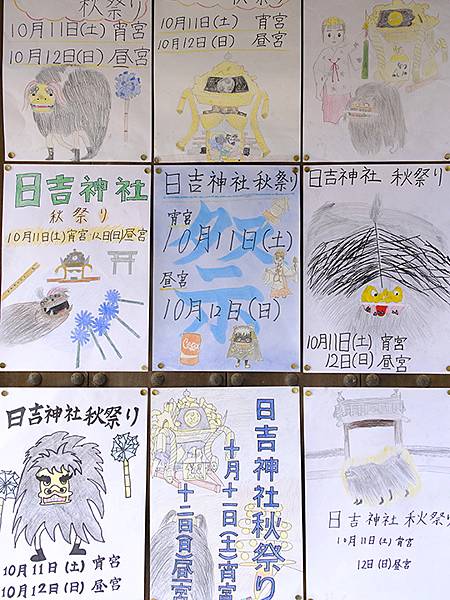 秋祭り
10月11日(土)宵宮
10月12日(日)昼宮
10月11日(土)宵宮
10月12日(日)昼宮
日吉神社
秋祭り
10月11日(土)宵宮12日(日)昼宮
日吉神社秋祭り
祭
宵宮
10月11日(土)
昼宮
10月12日(日)
日吉神社 秋祭り
10月11日(土) 宵宮
12日(日) 昼宮
日吉神社秋祭り
10月11日(土)宵宮
10月12日(日)昼宮
日吉神社秋祭り
十月十一日(土)宵宮
十二日(日)昼宮
日吉神社 秋祭り
10月11日(土) 宵宮
12日(日)昼宮